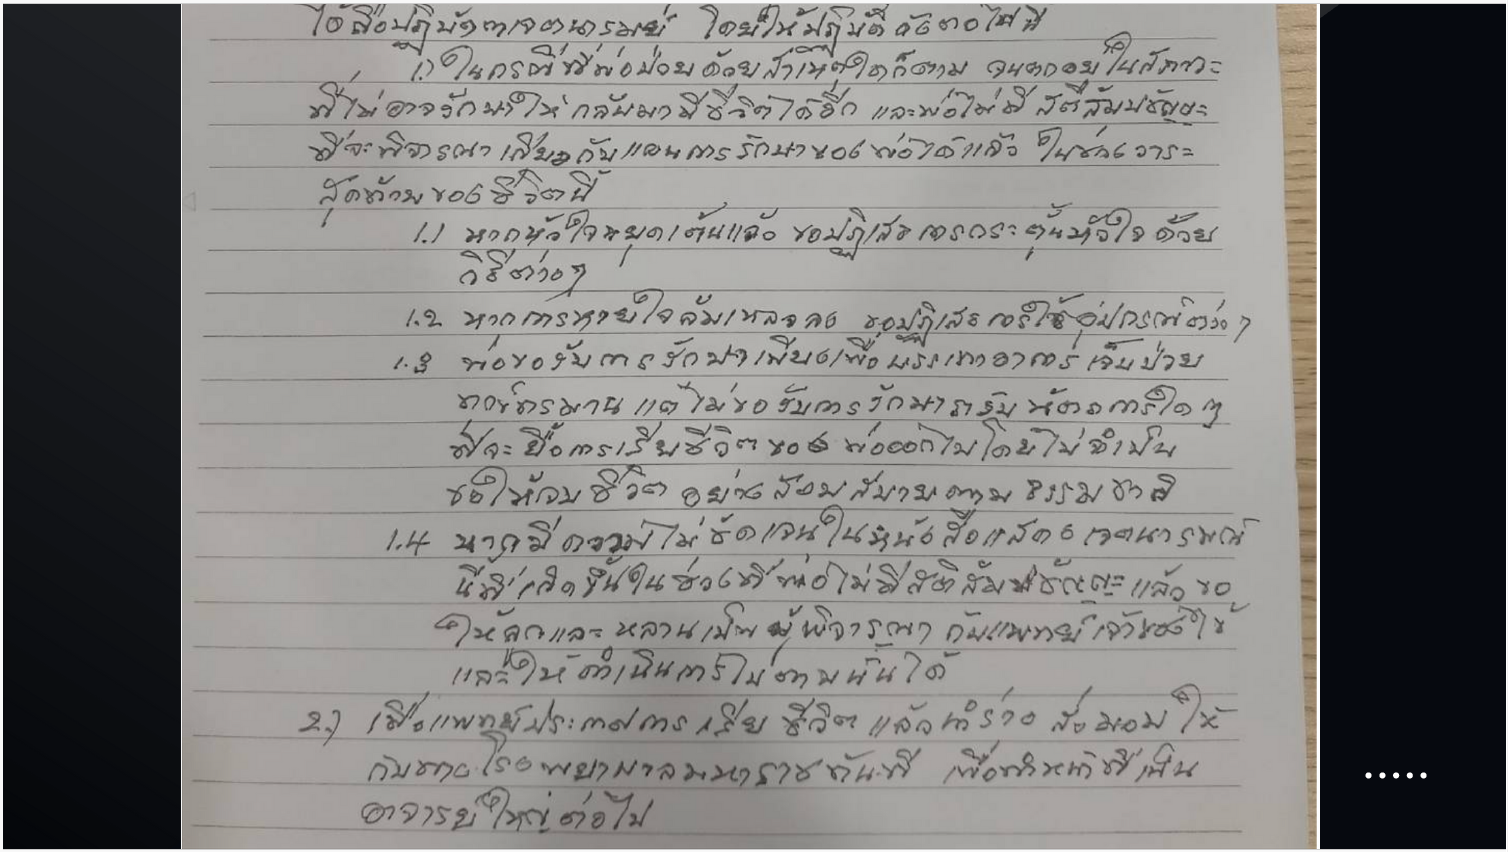 ได้ถือปฏิบัติตามเจตนารมย์ โดยให้ปฏิบัติ ดังต่อไปนี้
1.) ในกรณีที่พ่อป่วยด้วยสาเหตุใดก็ตาม จนตกอยู่ในสภาวะ
ที่ไม่อาจรักษาให้กลับมามีชีวิตได้อีก และพ่อไม่มีสติสัมปชัญญะ
ที่จะพิจารณาเกี่ยวกับแผนการรักษาของพ่อได้แล้ว ในช่วงวาระ
สุดท้ายของชีวิตนี้
1.1 หากหัวใจหยุดเต้นแล้ว ขอปฏิเสธการกระตุ้นหัวใจด้วย
วิธีต่างๆ
1.2 หากการหายใจล้มเหลวลง ขอปฏิเสธการใช้อุปกรณ์ต่างๆ
1.3 พ่อขอรับการรักษาเพียงเพื่อบรรเทาอาการเจ็บป่วย
ทรมาน แต่ไม่ขอรับการรักษา หัตถการใดๆ
ที่จะยื้อการเสียชีวิตของพ่อออกไปโดยไม่จำเป็น
ขอให้จบชีวิตอย่างสงบสบายตามธรรมชาติ
1.4 หากมีความไม่ชัดเจนในหนังสือแสดงเจตนารมณ์
นี้ที่เกิดขึ้นในช่วงที่พ่อไม่มีสติสัมปชัญญะแล้ว ขอ
ให้ลูกและหลานเป็นผู้พิจารณากับแพทย์เจ้าของไข้
และให้ดำเนินการไปตามนั้นได้
2.) เมื่อแพทย์ประกาศการเสียชีวิตแล้วนำร่างส่งมอบให้
กับทางโรงพยาบาลมหาราช เพื่อทำหน้าที่เป็น
อาจารย์ใหญ่ต่อไป